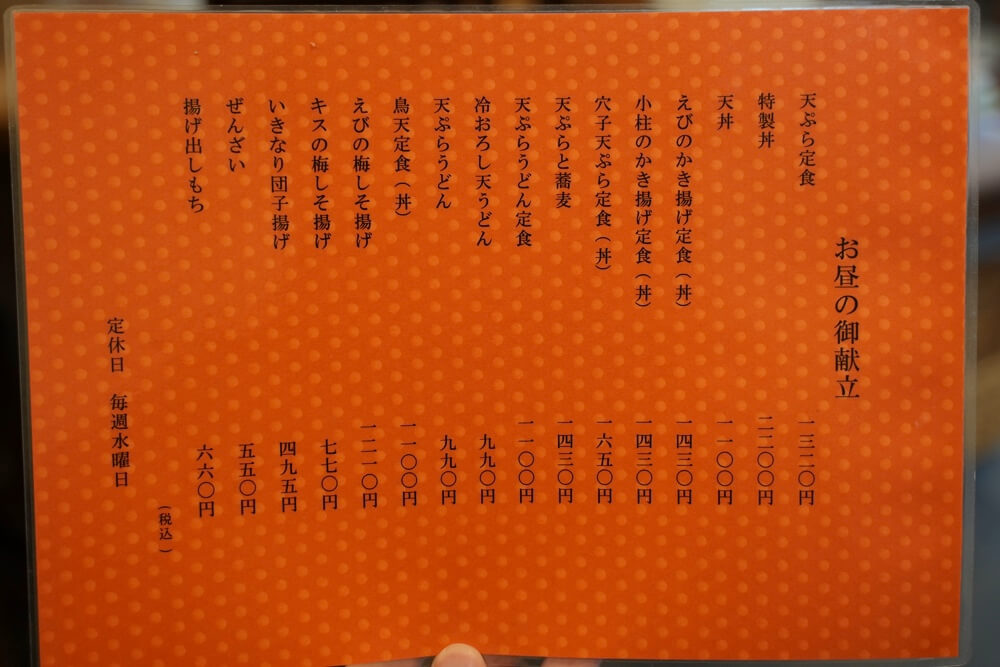 お昼の御献立
天ぷら定食 一三二〇円
特製丼 二二〇〇円
天丼 一一〇〇円
えびのかき揚げ定食(丼) 一四三〇円
小柱のかき揚げ定食(丼) 一四三〇円
穴子天ぷら定食(丼) 一六五〇円
天ぷらと蕎麦 一四三〇円
天ぷらうどん定食 一一〇〇円
冷おろし天うどん 九九〇円
天ぷらうどん 九九〇円
鳥天定食(丼) 一一〇〇円
えびの梅しそ揚げ 一二一〇円
キスの梅しそ揚げ 七七〇円
いきなり団子揚げ 四九五円
ぜんざい 五五〇円
揚げ出しもち 六六〇円
(税込)
定休日 毎週水曜日